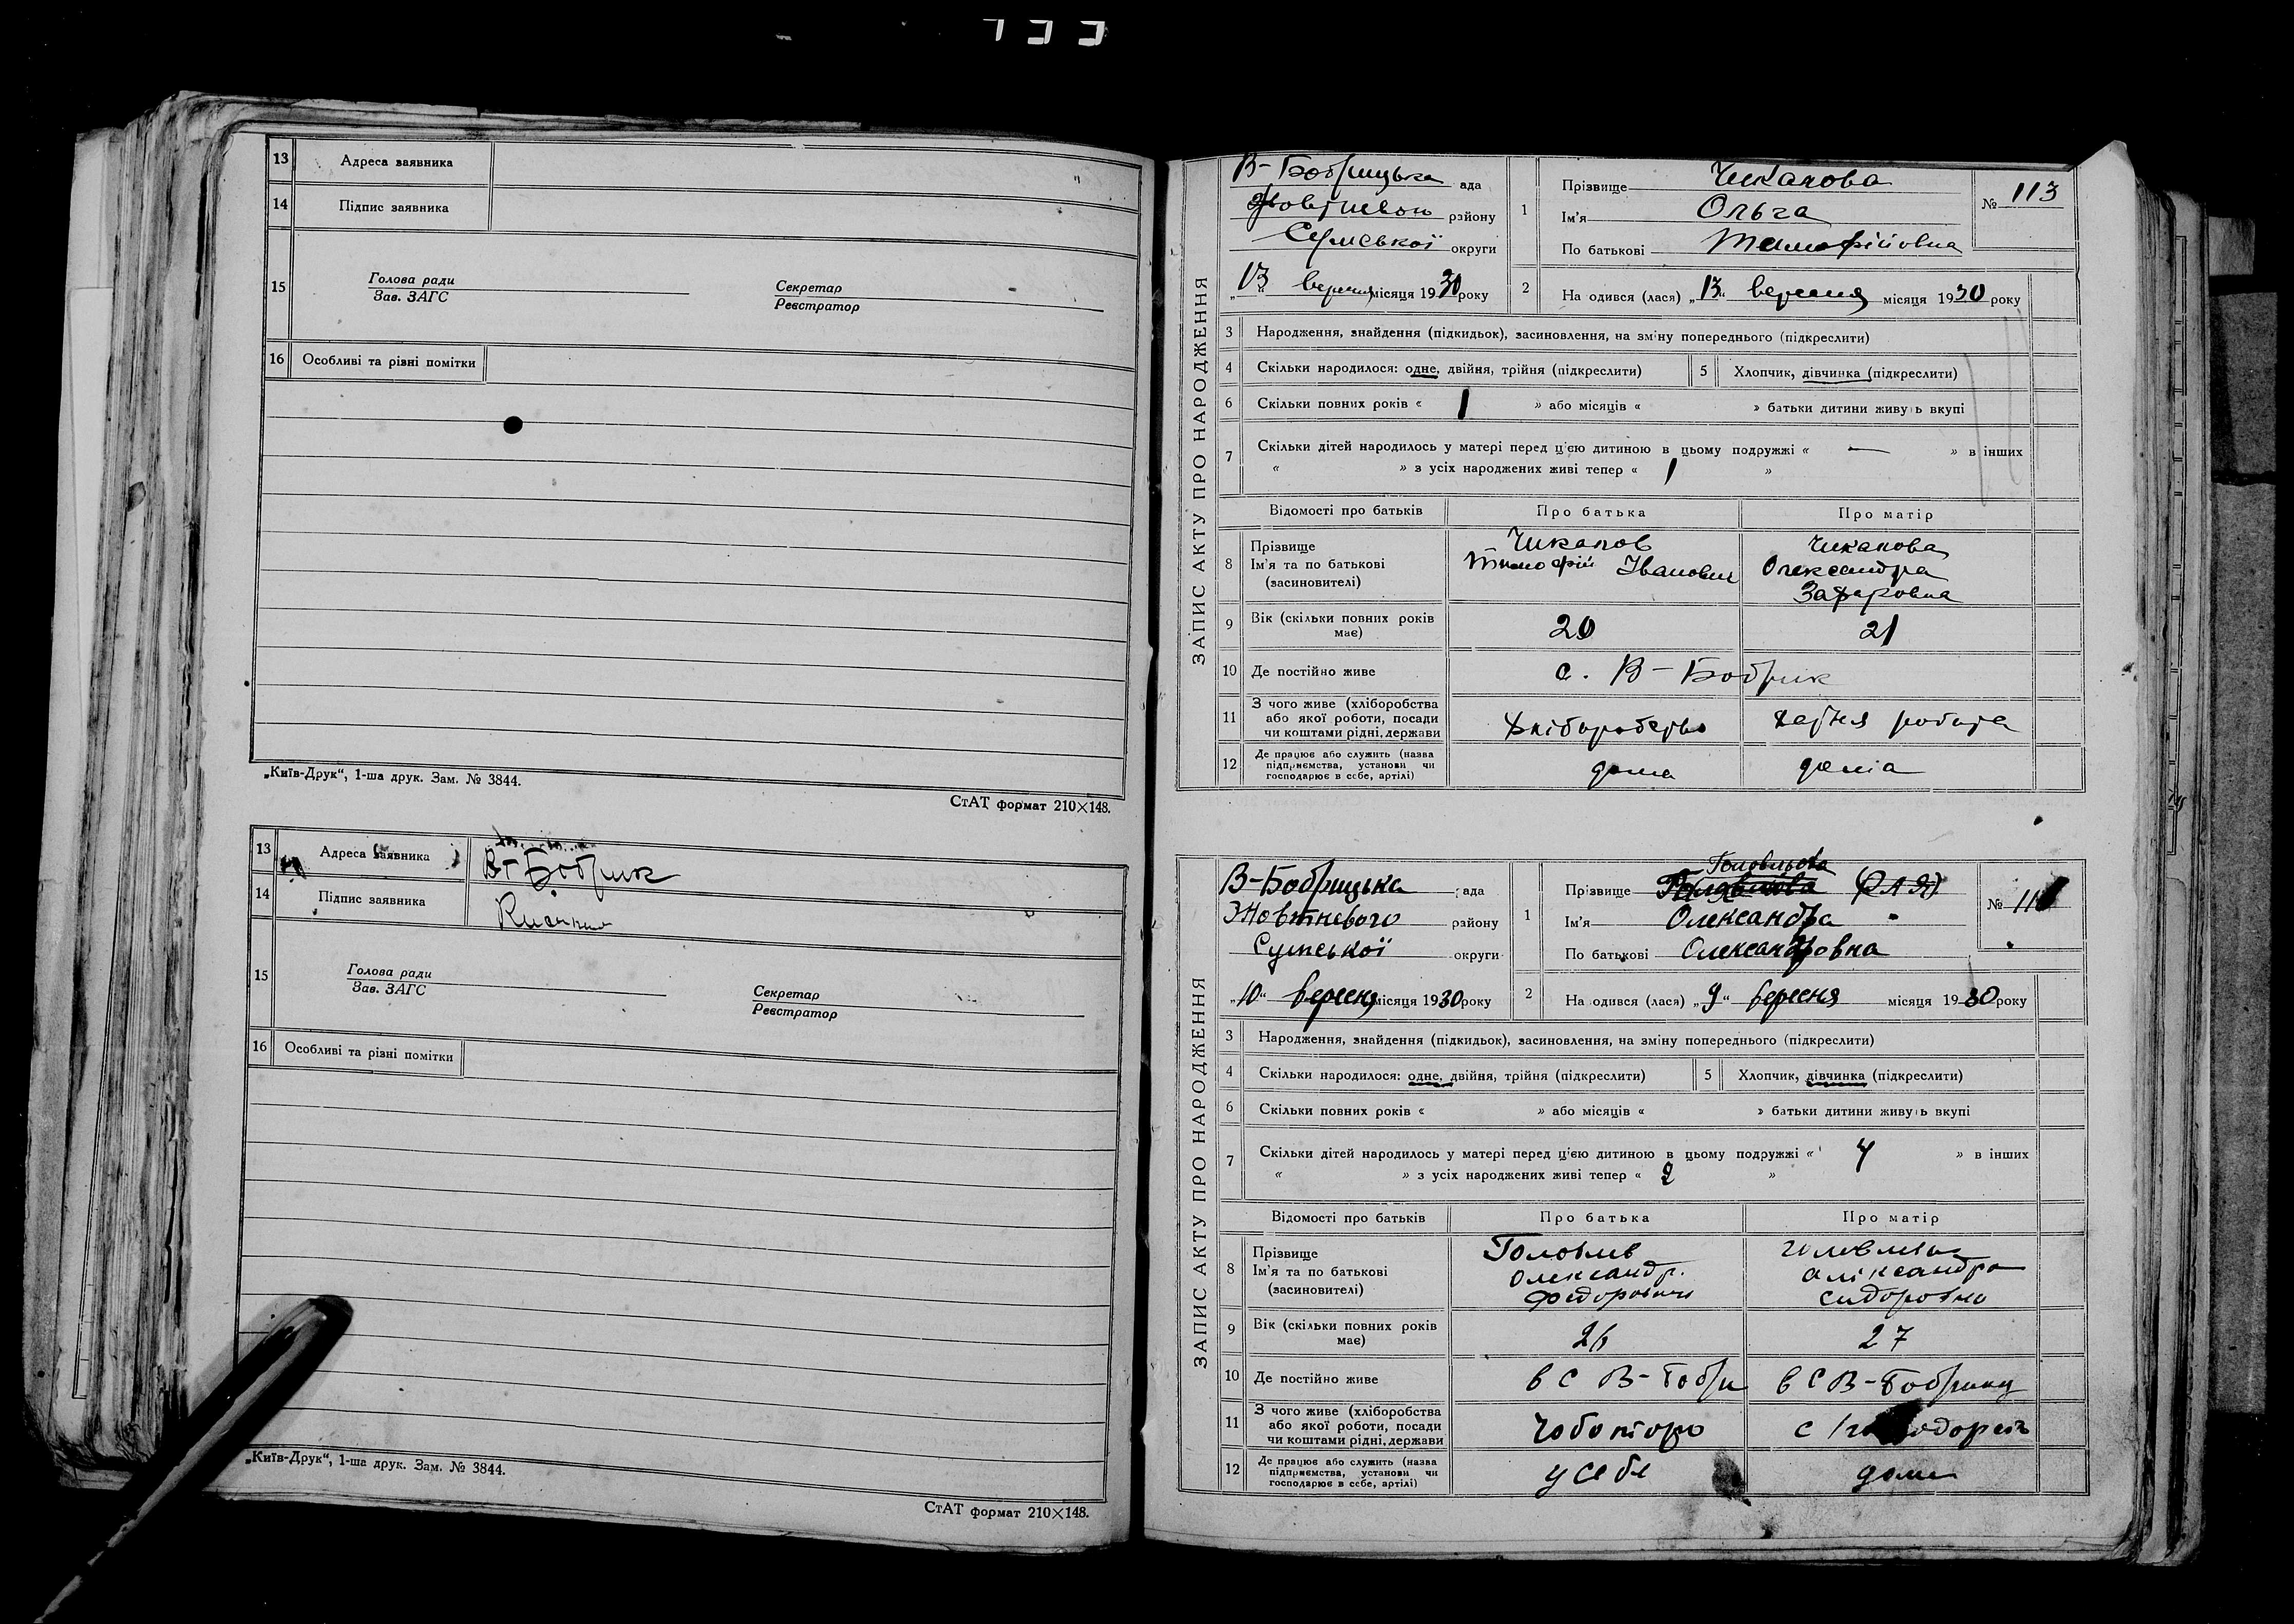 13 Адреса заявника
14 Підпис заявника
15 Голова ради Секретар
Зав. ЗАГС Реєстратор
16 Особливі та різні помітки
„Київ-Друк“, 1-ша друк. Зам. № 3844.
СтАТ формат 210×148.
13 Адреса заявника В-Бобрик
14 Підпис заявника
15 Голова ради Секретар
Зав. ЗАГС Реєстратор
16 Особливі та різні помітки
„Київ-Друк“, 1-ша друк. Зам. № 3844.
СтАТ формат 210×148.
ЗАПИС АКТУ ПРО НАРОДЖЕННЯ
В-Бобрицька ада
району
Сумської округи
„13“ вересня місяця 1930 року
1 Прізвище Чиканова
Ім'я Ольга
По батькові Тимофійовна
№ 113
2 На одився (лася) „13“ вересня місяця 1930 року
3 Народження, знайдення (підкидьок), засиновлення, на зміну попереднього (підкреслити)
4 Скільки народилося: одне, двійня, трійня (підкреслити) 5 Хлопчик, дівчинка (підкреслити)
6 Скільки повних років « 1 » або місяців « » батьки дитини живуть вкупі
7 Скільки дітей народилось у матері перед цією дитиною в цьому подружжі « — » в інших
« » з усіх народжених живі тепер « 1 »
Відомості про батьків Про батька Про матір
8 Прізвище Чиканов Чиканова
Ім'я та по батькові Тимофій Іванович Олександра
(засиновителі) Захаровна
9 Вік (скільки повних років має) 20 21
10 Де постійно живе с. В-Бобрик
11 З чого живе (хліборобства або якої роботи, посади чи коштами рідні, держави Хліборобство хатня робота
12 Де працює або служить (назва підприємства, установи чи господарює в себе, артілі) дома дома
ЗАПИС АКТУ ПРО НАРОДЖЕННЯ
В-Бобрицька ада
Жовтневого району
Сумської округи
„10“ вересня місяця 1930 року
1 Прізвище
Ім'я Олександра
По батькові Олександровна
№
2 На одився (лася) „9“ вересня місяця 1930 року
3 Народження, знайдення (підкидьок), засиновлення, на зміну попереднього (підкреслити)
4 Скільки народилося: одне, двійня, трійня (підкреслити) 5 Хлопчик, дівчинка (підкреслити)
6 Скільки повних років « » або місяців « » батьки дитини живуть вкупі
7 Скільки дітей народилось у матері перед цією дитиною в цьому подружжі « 4 » в інших
« » з усіх народжених живі тепер « 2 »
Відомості про батьків Про батька Про матір
8 Прізвище
Ім'я та по батькові Олександр. Аліксандра
(засиновителі) Федорович Сидоровна
9 Вік (скільки повних років має) 26 27
10 Де постійно живе в с В-Бобри в с В-Бобрику
11 З чого живе (хліборобства або якої роботи, посади чи коштами рідні, держави
12 Де працює або служить (назва підприємства, установи чи господарює в себе, артілі) у себе дома